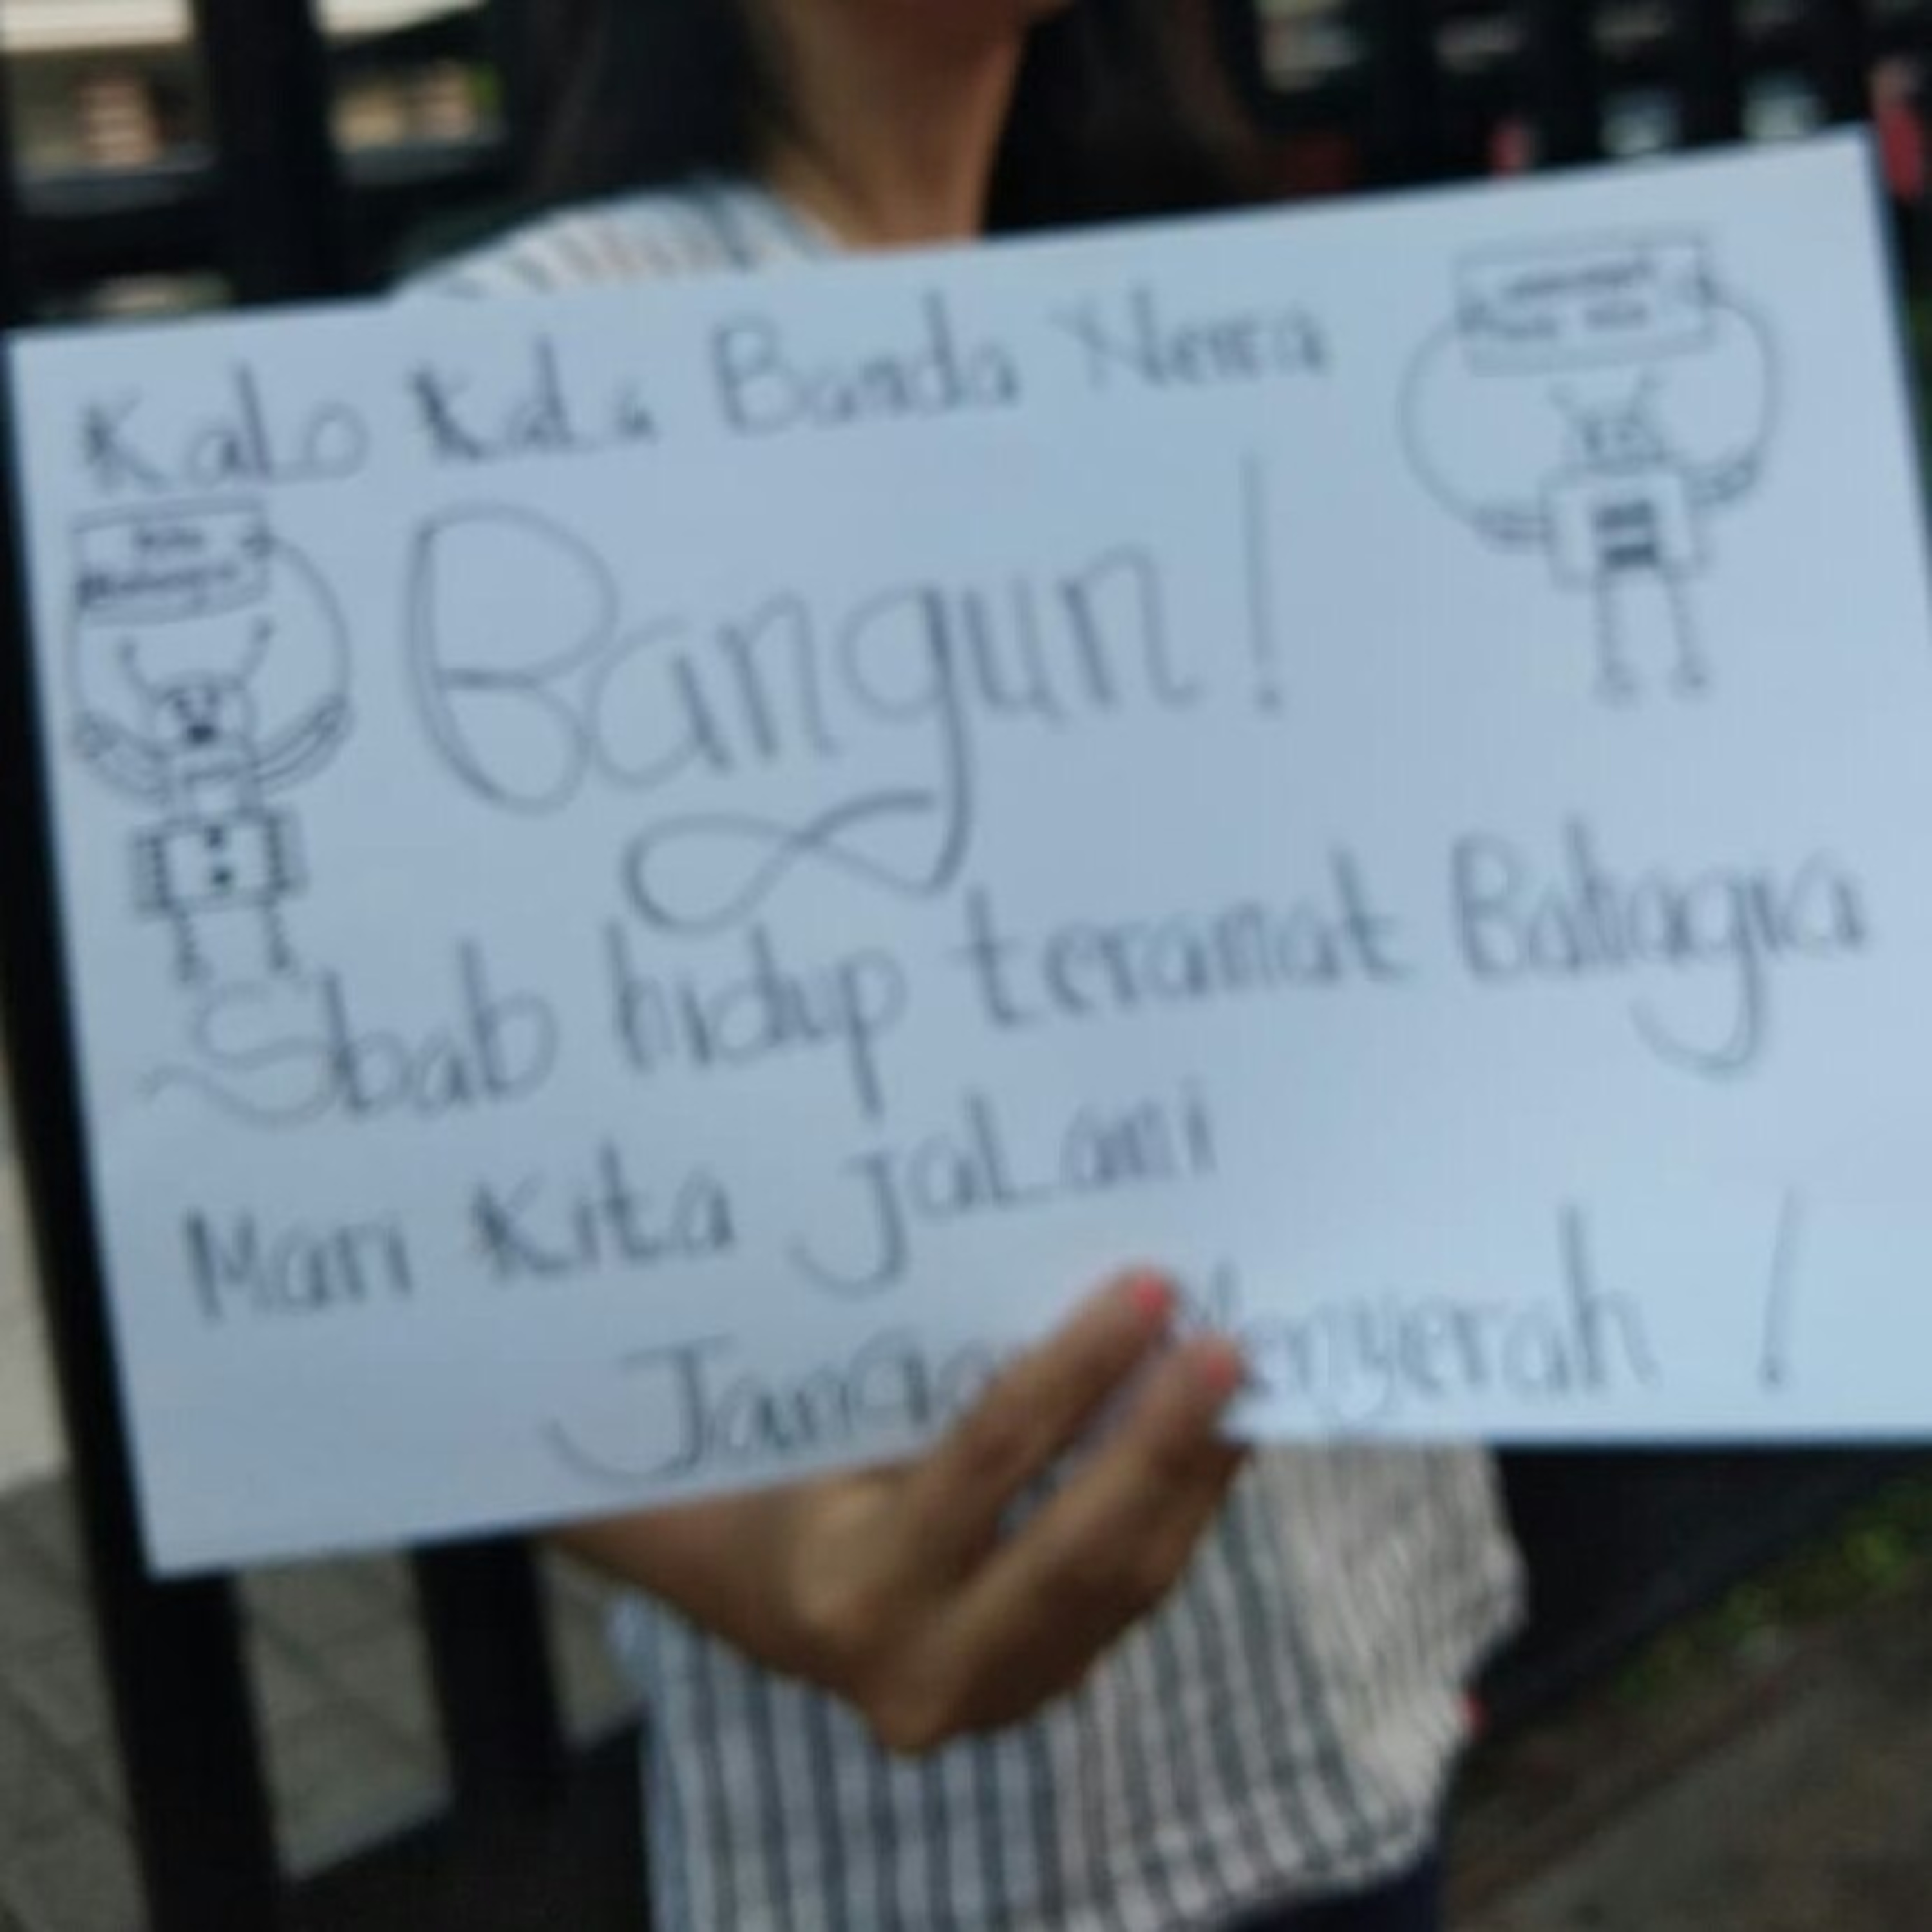 Kalo Kata Banda Neira
Bangun!
Sbab hidup teramat Bahagia
Mari Kita jaLani
Menyerah !